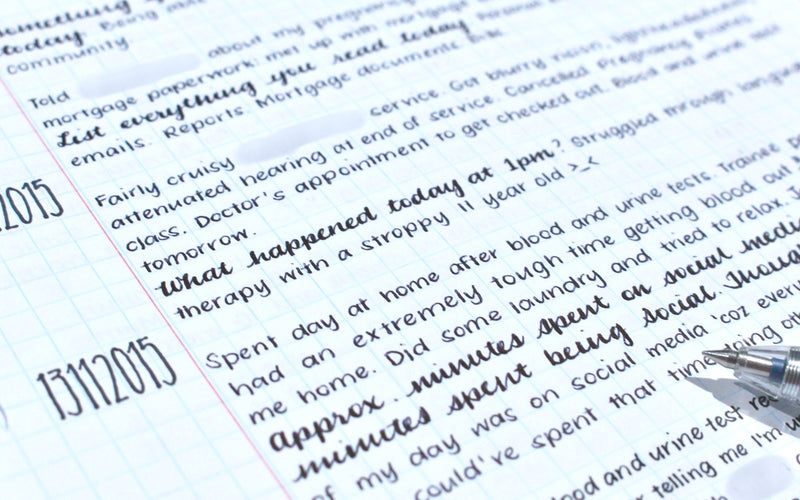 something
today. Being able
community
Told about my pregnancy
mortgage paperwork; met up with mortgage
List everything you read today. Personal
emails. Reports. Mortgage documents.
2015
Fairly cruisy service. Got blurry vision, lightheadedness
attenuated hearing at end of service. Cancelled Pregnancy Pilates
class. Doctor's appointment to get checked out. Blood and urine test
tomorrow.
What happened today at 1pm? Struggled through language
therapy with a stroppy 11 year old >_<
13112015
Spent day at home after blood and urine tests. Trainee
had an extremely tough time getting blood out
me home. Did some laundry and tried to relax.
approx. minutes spent on social media
minutes spent being social. Though
of my day was on social media 'coz every
could've spent that time doing
blood and urine test
telling me I'm